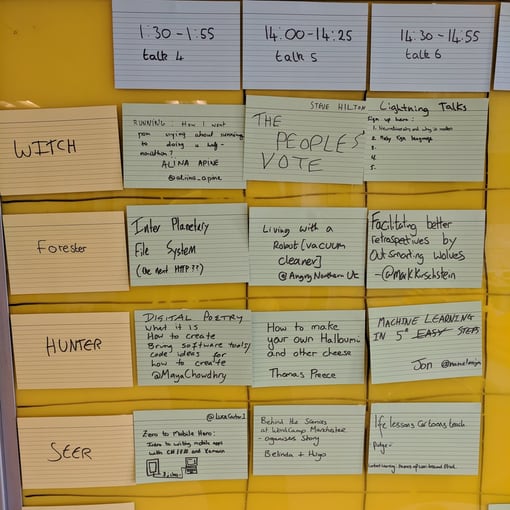 1:30-1:55
talk 4
14:00-14:25
talk 5
14:30-14:55
talk 6
WITCH
RUNNING: How I went
from crying about running
to doing a half-
marathon?
ALINA APINE
@alina_apine
STEVE HILTON
THE
PEOPLES'
VOTE
Lightning Talks
Sign up here:
1. Neurodiversity and why it matters
2. Baby sign language
3.
4.
5.
Forester
Inter Planetary
File System
(the next HTTP??)
Living with a
Robot [vacuum
cleaner]
@AngryNorthernUK
Facilitating better
retrospectives by
Outsmarting Wolves
-(@MarkKirschstein
HUNTER
DIGITAL POETRY
What it is
How to create
Bring software tools/
code ideas for
how to create
@MayaChowdhry
How to make
your own Halloumi
and other cheese
Thomas Preece
MACHINE LEARNING
IN 5* EASY STEPS
Jon
SEER
Zero to Mobile Hero:
Intro to writing mobile apps
with C#/F# and Xamarin
Behind the Scenes
at WordCamp Manchester
- organisers story
Belinda + Hugo
life lessons Cartoons teach